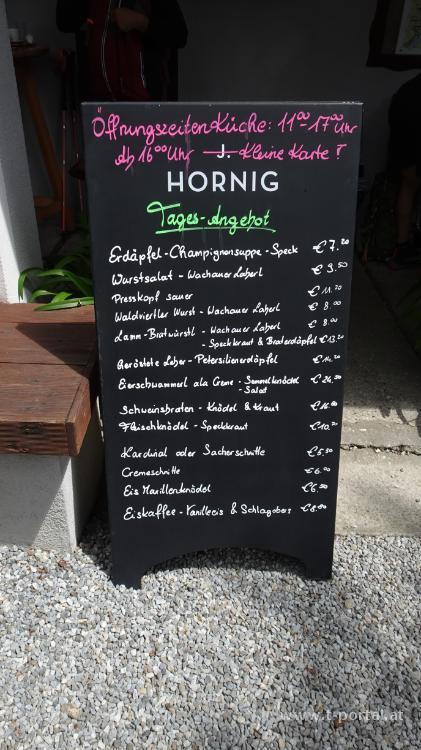 Öffnungszeiten Küche: 11⁰⁰-17⁰⁰ Uhr
Ab 16⁰⁰ Uhr - Kleine Karte!
J.
HORNIG
Tages-Angebot
Erdäpfel-Champignonsuppe-Speck €7.20
Wurstsalat - Wachauer Laberl € 9.50
Presskopf sauer € 11.20
Waldviertler Wurst - Wachauer Laberl € 8.00
Lamm-Bratwürstl - Wachauer Laberl € 8.00
- Speckkraut & Braterdäpfel €13.20
Geröstete Leber - Petersilienerdäpfel €14.20
Eierschwammerl ala Creme - Semmelknödel €24.50
- Salat
Schweinsbraten - Knödel & Kraut €16.00
Fleischknödel - Speckkraut €10.20
Kardinal oder Sacherschnitte €5.50
Cremeschnitte €6.00
Eis Marillenknödel €6.50
Eiskaffee - Vanilleeis & Schlagobers €8.00
www.t-portal.at